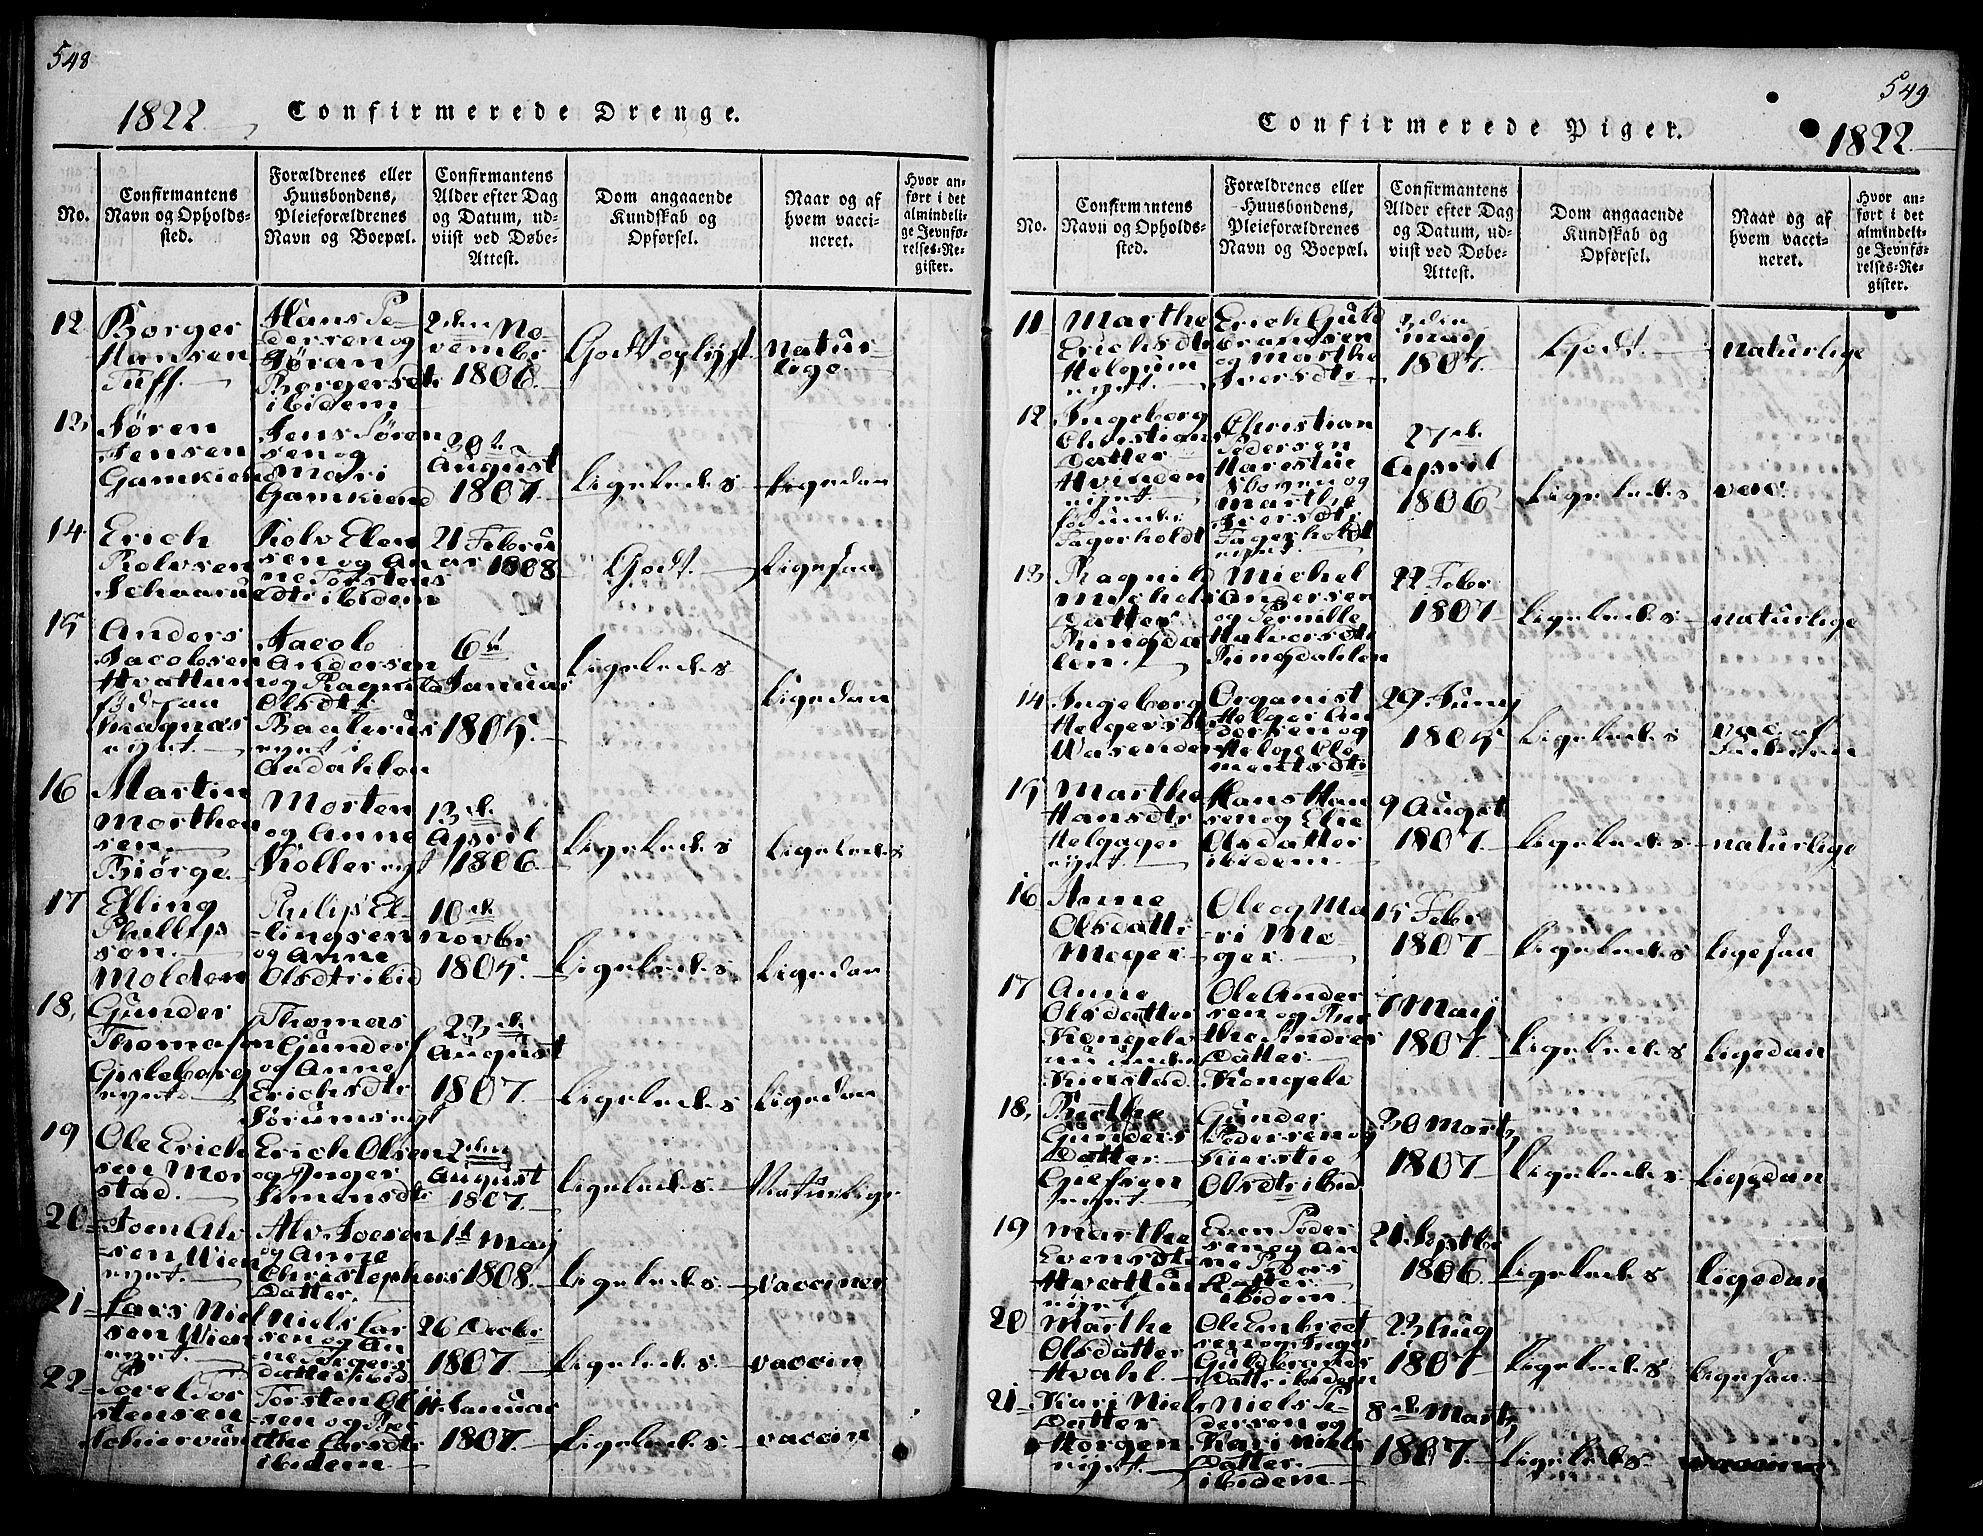 548
1822
Confirmerede Drenge.
No.
Confirmantens
Navn og Opholds-
sted.
Forældrenes eller
Huusbondens,
Pleieforældrenes
Navn og Boepæl.
Confirmantens
Alder efter Dag
og Datum, ud-
viist ved Døbe-
Attest.
Dom angaaende
Kundskab og
Opførsel.
Naar og af
hvem vacci-
neret.
Hvor an-
ført i det
almindeli-
ge Jevnfø-
relses-Re-
gister.
12
Borger
Hansen
Tuff.
Hans Pe-
dersen og
Jøran
Borgersdtr
ibidem
2den No-
vembr
1806
Godt oplyst
natur-
lige.
13
Søren
Jensen
Gamkiend
Jens Søren
sen og
Mari
Gamkiend
30te
August
1807
Ligeledes
Ligedan
14
Erich
Rolvsen
Rolv Elen
sen og An
ne Torstens
dtr ibidem
21 Febru
ar 1808
Godt.
Ligesaa
15
Anders
Jacobsen
Hvattum
fød paa
Magnæs
eyet.
Jacob
Andersen
og Ragnild
Olsdtr
eyet i
Aadahlen
6te
Januar
1805
Ligeledes
Ligedan
16
Martin
Morthen
sen
Biørge
Morten
og Anne
Kollereyt
13de
April
1806
Ligeledes
Ligeledes
17
Elling
Phillip
sen.
Molden
Philip El-
lingsen
og Anne
Olsdtr ibid
10de
Novbr
1805.
Ligeledes
Ligedan
18,
Gunder
Thomassen
Gisleberg
eyet
Thomas
Gunders
og Anne
Erichsdtr
Sørumseyt
23de
August
1807
Ligeledes
Ligedan
19
Ole Erich
sen Mor
stad.
Erich Olsen
og Inger
Simensdtr
2den
August
1807.
Ligeledes
Naturlige
20
Joen Alv
sen Wien
eyet.
Alv Joesen
og Anne
Christophers
Datter.
1te May
1808.
Ligeledes
vacciner
21
Lars Niel
sen Wien
eyet.
Niels Lar
sen og An
ne Jegers
datter ibid
26 Octobr
1807
Ligeledes
vaccin
22
Torel Tor
stensen
Torsten Ol
sen og Ber
the Larsdtr
ibidem
11te Januar
1807.
Ligeledes
vaccin
549
Confirmerede Piger.
1822
No.
Confirmantens
Navn og Opholds-
sted.
Forældrenes eller
Huusbondens,
Pleieforældrenes
Navn og Boepæl.
Confirmantens
Alder efter Dag
og Datum, ud-
viist ved Døbe-
Attest.
Dom angaaende
Kundskab og
Opførsel.
Naar og af
hvem vacci-
neret.
Hvor an-
ført i det
almindeli-
ge Jevnfø-
relses-Re-
gister.
11
Marthe
Erichsdtr
Helgum
eyet.
Erich Guld
brandsen
og Marthe
Iversdtr
3die
May
1807.
Godt.
naturlige
12
Ingeborg
Christians
Datter
Hvinden
eyet
fød under
Fagerholdt
Christian
Pedersen
Harestue
Skoven og
Marthe
Iversdtr
Fagerholdt
eyet.
27de
April
1806
Ligeledes
vac.
13
Ragnild
Michels
Datter
Ringsda
len.
Michel
Andersen
og Pernille
Halvorsdtr
Ringdahlen
22 Febr
1807
Ligeledes
naturlige
14
Ingeborg
Helgersdtr
Wasenden
Organist
Helger An
dersen og
Helge Cle
mentsdtr
29 Juny
1805
Ligeledes
vac af
15
Marthe
Hansdtr
Helgager
eyet
Hans Han
sen og Elie
Olsdatter
ibidem.
9 August
1807
Ligeledes
naturlige
16
Anne
Olsdattr
Moger
Ole og Ma
ri Mo
ger
15 Febr
1807
Ligeledes
ligesaa
17
Anne
Olsdatter
Kongelv
Kierstad
Ole Ander
sen og Ber
the Andres
Datter.
Kongelv
7 May
1807.
Ligeledes
Ligedan
18,
Berthe
Gunders
Datter
eyet
Gunder
Pedersen og
Kierstie
Olsdtr ibid
30 Martz
1807
Ligeledes
Ligedan
19
Marthe
Evensdtr
Hvattum
eyet
Even Peder
sen og An
ne Peders
Datter
ibidem.
21 Septbr
1806
Ligeledes
Ligedan
20
Marthe
Olsdatter
Hvahl.
Ole Embret
sen og Inger
Guldbrands
Dattr ibidem
23 Aug
1807
Ligeledes
Ligesaa.
21
Kari Niels
Datter
Horgen
eyet.
Niels Pe-
dersen og
Kari Niels
Datter.
ibidem
8de Martz
1807.
Ligeledes